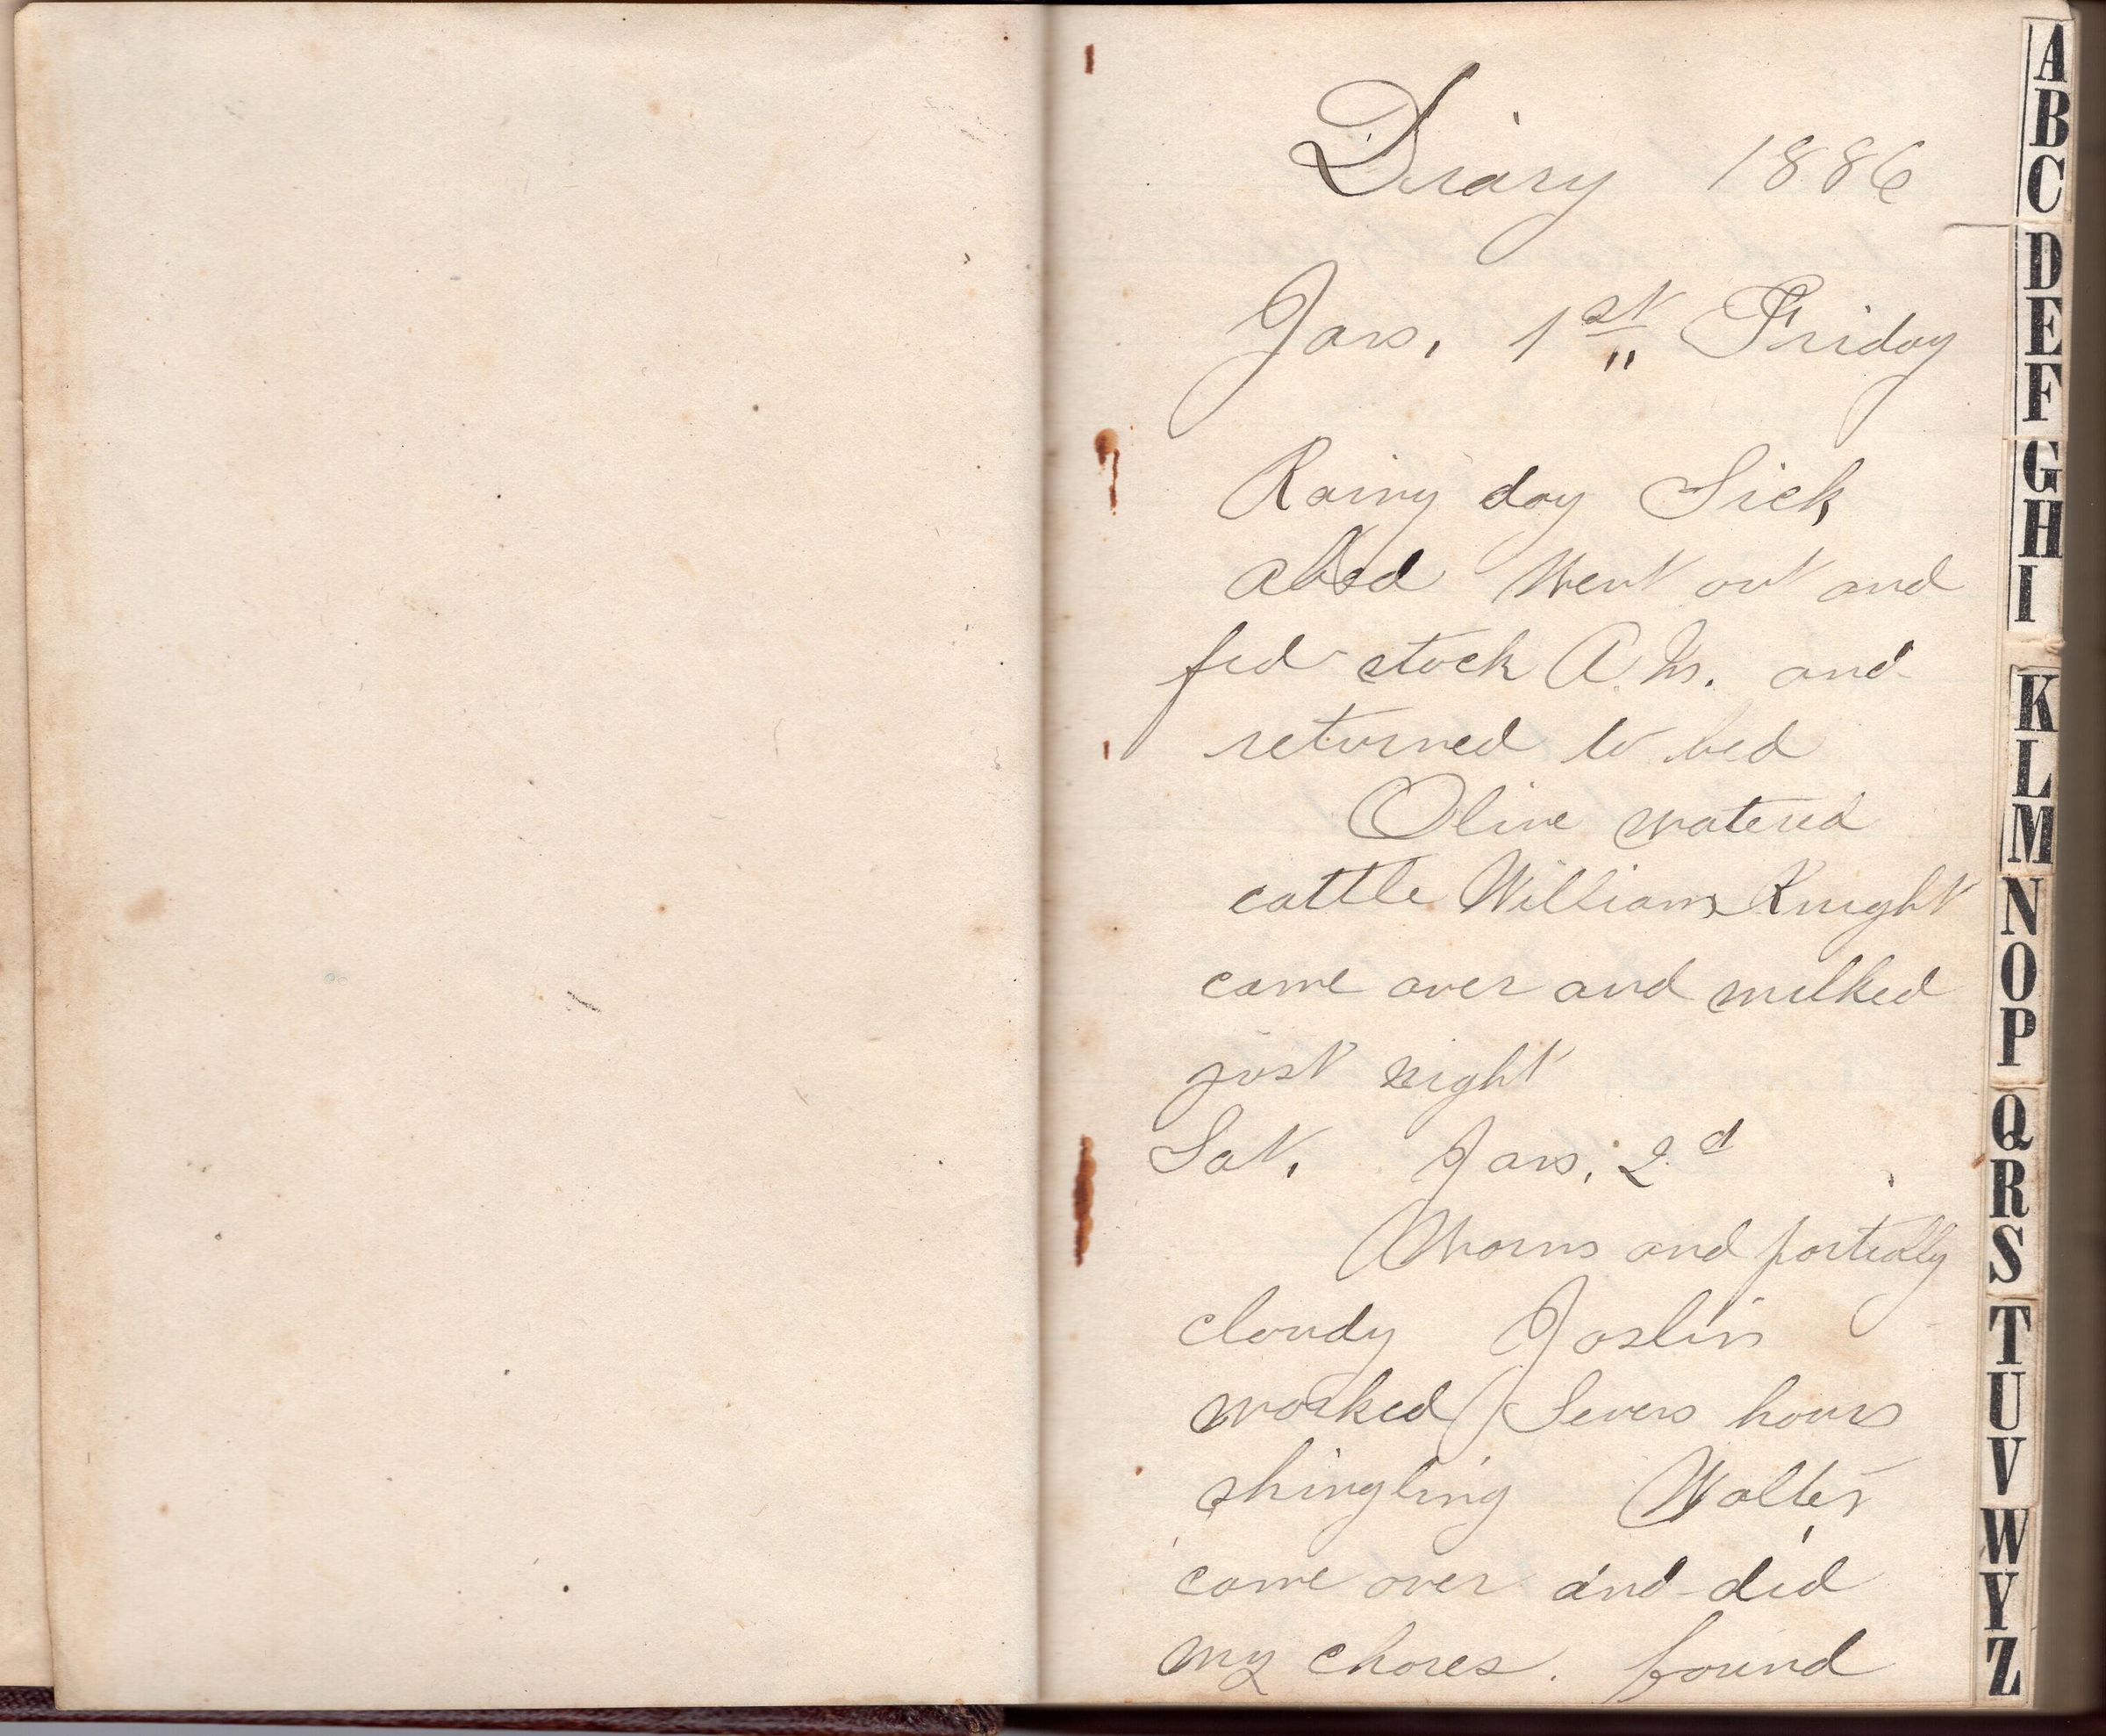 Diary 1886
Jan. 1st Friday
Rainy day Sick
abed Went out and
fed stock A.M. and
returned to bed
Olive watered
cattle William Knight
came over and milked
just night
Sat. Jan. 2d
Warm and partially
cloudy Joslin
worked Seven hours
shingling Walter
came over and did
my chores. found
A
B
C
D
E
F
G
H
I
K
L
M
N
O
P
Q
R
S
T
U
V
W
Y
Z